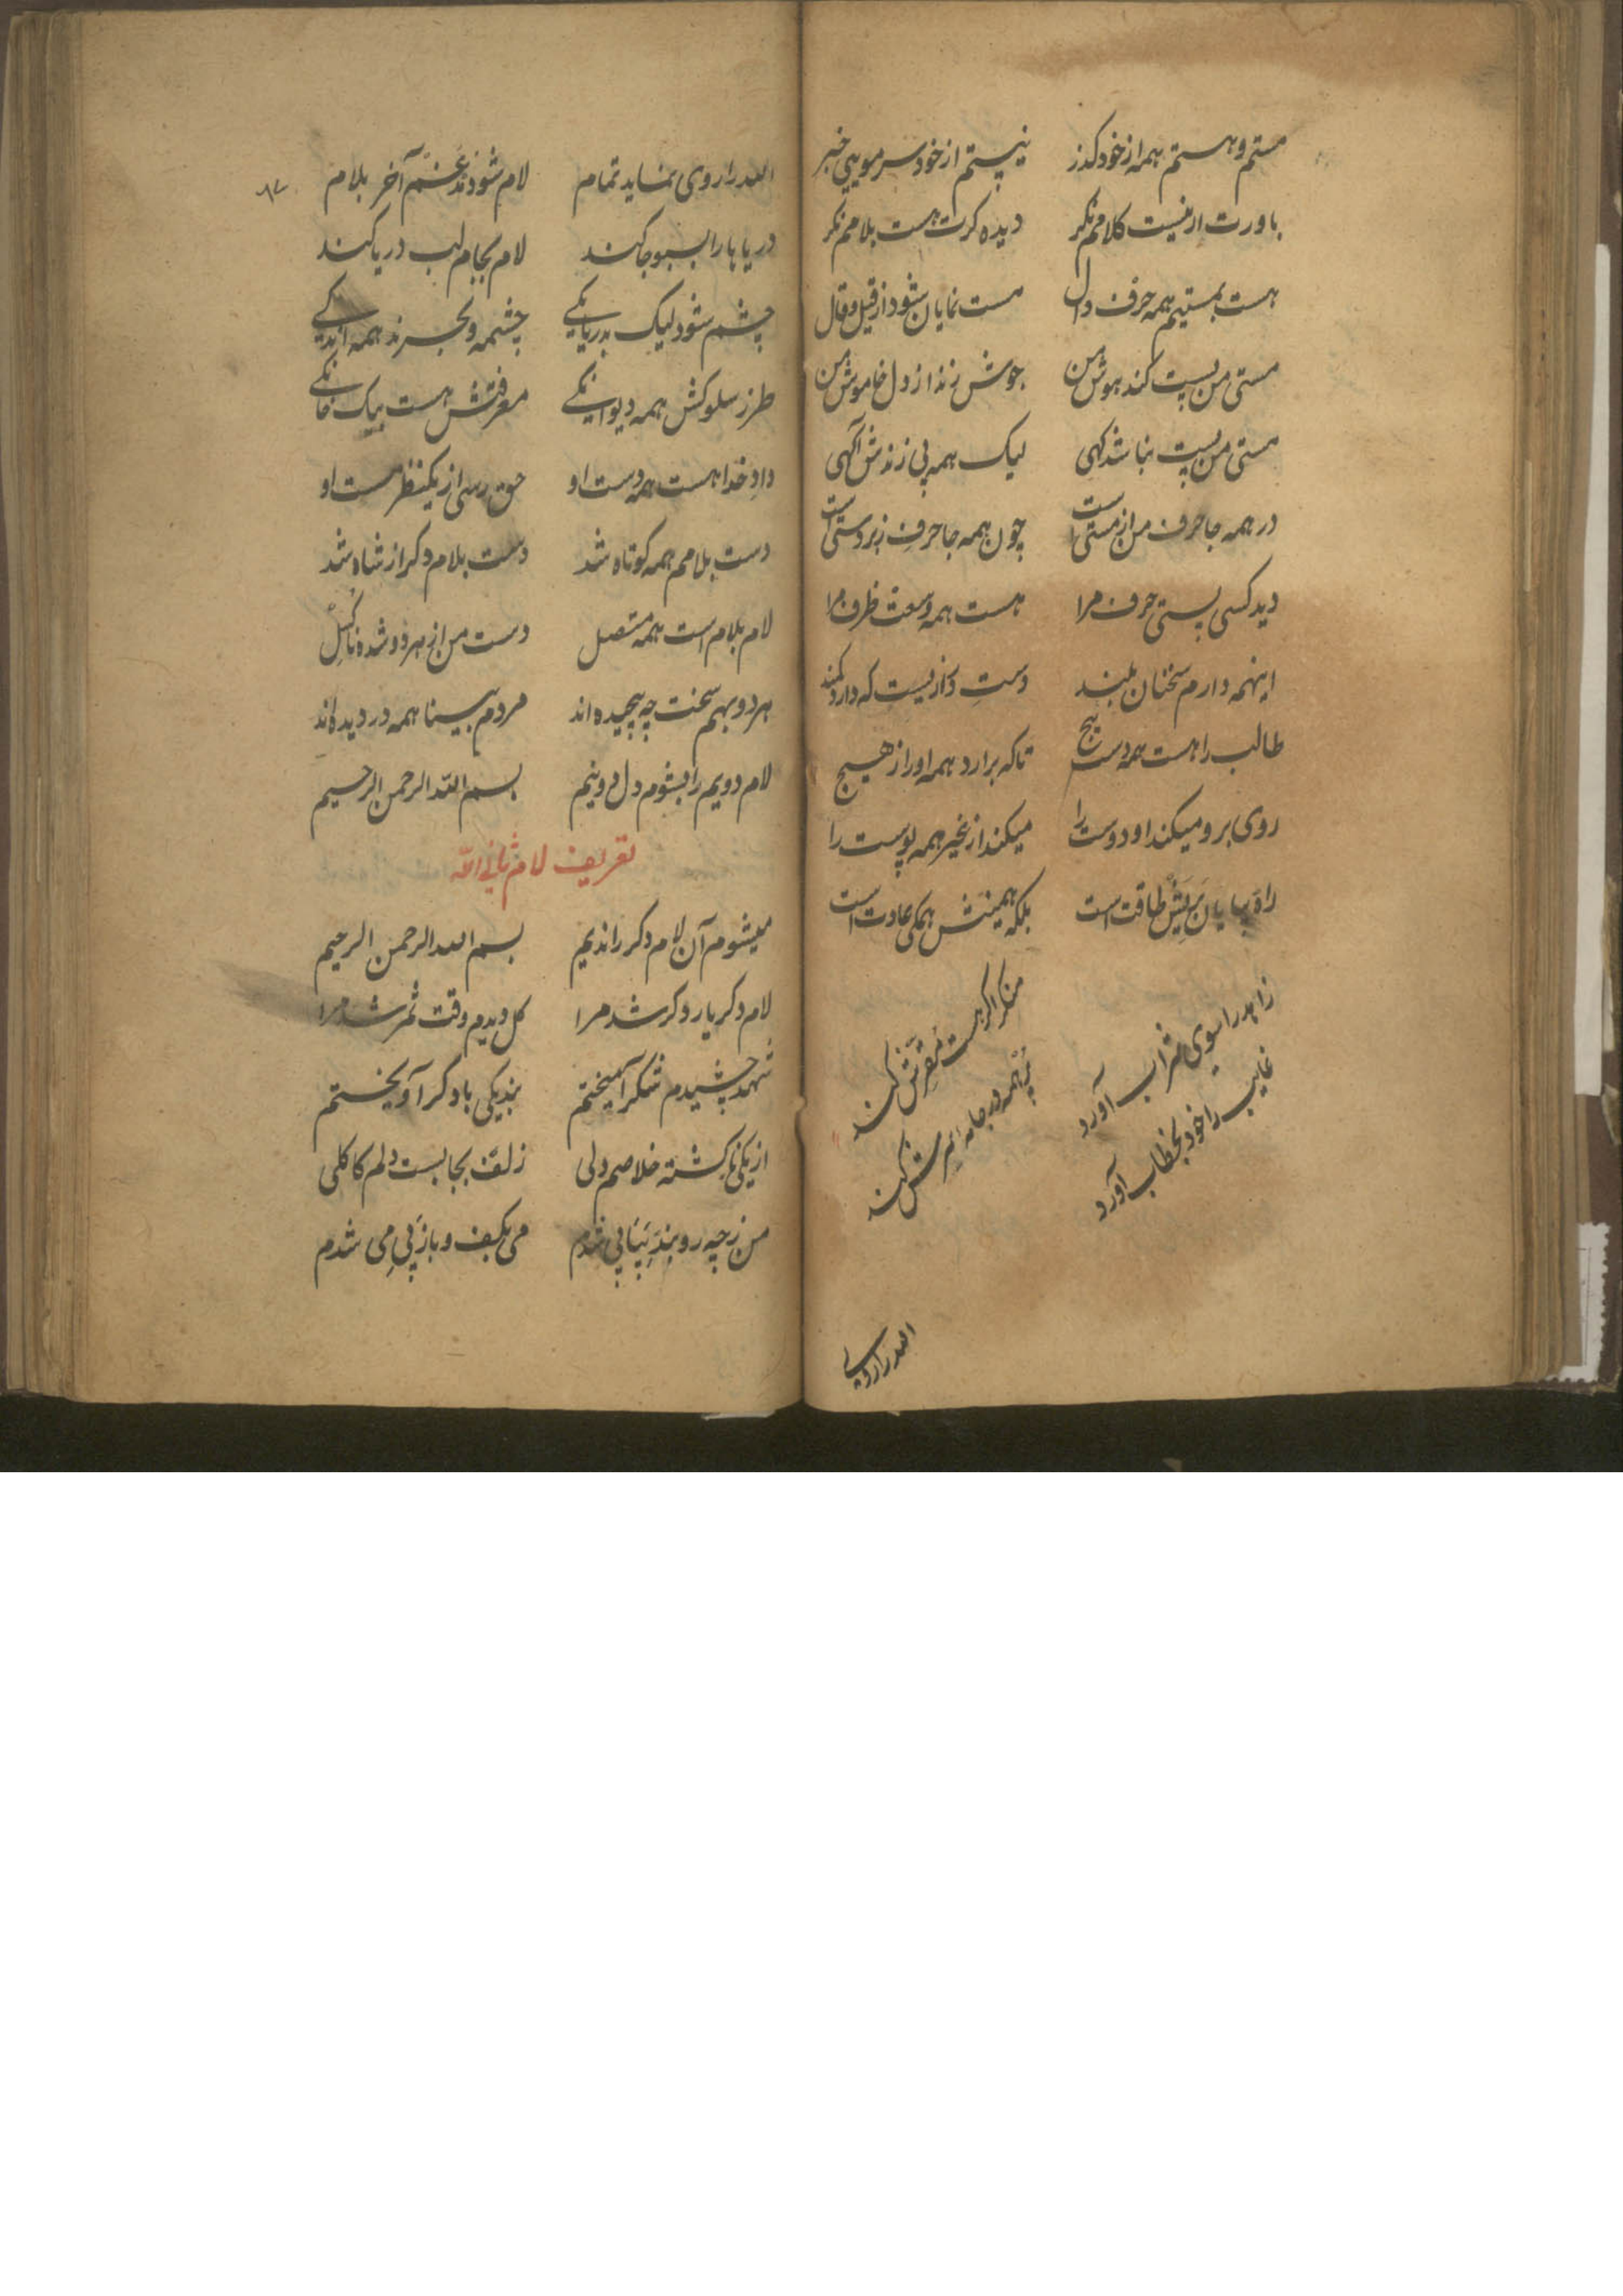 مستم و هستم همه از خود کذر نیستم از خود سر مویی خبر
باورت ار نیست کلامم نکر دیده کرت هست بلامم نکر
هست بمستیم همه حرف دال هست نمایان شود از قیل و قال
مستی من پست کند هوش من جوش زند از دل خاموش من
مستی من پست نباشد کهی لیک همه پی زندش آکهی
در همه جا حرف من از مستی است چون همه جا حرف زبردستی است
دید کسی پستی حرف مرا هست همه وسعت ظرف مرا
اینهمه دارم سخنان بلند دست دراز نیست که دارد کمند
طالب را هست همه دست پیچ تا که برارد همه او را از هیچ
روی برو میکند او دوست را میکند از غیر همه پوست را
راه بپایان بریش طاقت است بلکه همینش همکی عادت است
زاهد را سوی شراب آورد منکر اکر هست مقرش کند
غایب را خود بخطاب آورد پر همه در جامه شش کند
الله را روی
الله را روی نماید تمام لام شود مدغم آخر بلام
دریاها را بسبو جا کند لام بجام لب دریا کند
چشم شود لیک بدریایکی چشمه و بحرند همه اندکی
طرز سلوکش همه دیوانکی معرفتش هست بیک خانکی
داد خدا هست همه دست او حق رسی از یکنظر مست او
دست بلامم همه کوتاه شد دست بلام دکر از شاه شد
لام بلام است همه متصل دست من از هر دو شده ناکسل
هر دو بهم سخت چه پیچیده اند مردم بینا همه در دیده اند
لام دویم را بشوم دل دو نیم بسم الله الرحمن الرحیم
تعریف لام ثانی الله
میشوم آن لام دکر را ندیم بسم الله الرحمن الرحیم
لام دکر یار دکر شد مرا کل دیدم وقت ثمر شد مرا
شهد چشیدم شکر آمیختم بند یکی با دکر آویختم
از یکی نکشته خلاصم ولی زلف بجا بست دلم کاکلی
من ز چه رو بند پیاپی شدم می بکف و باز پی می شدم